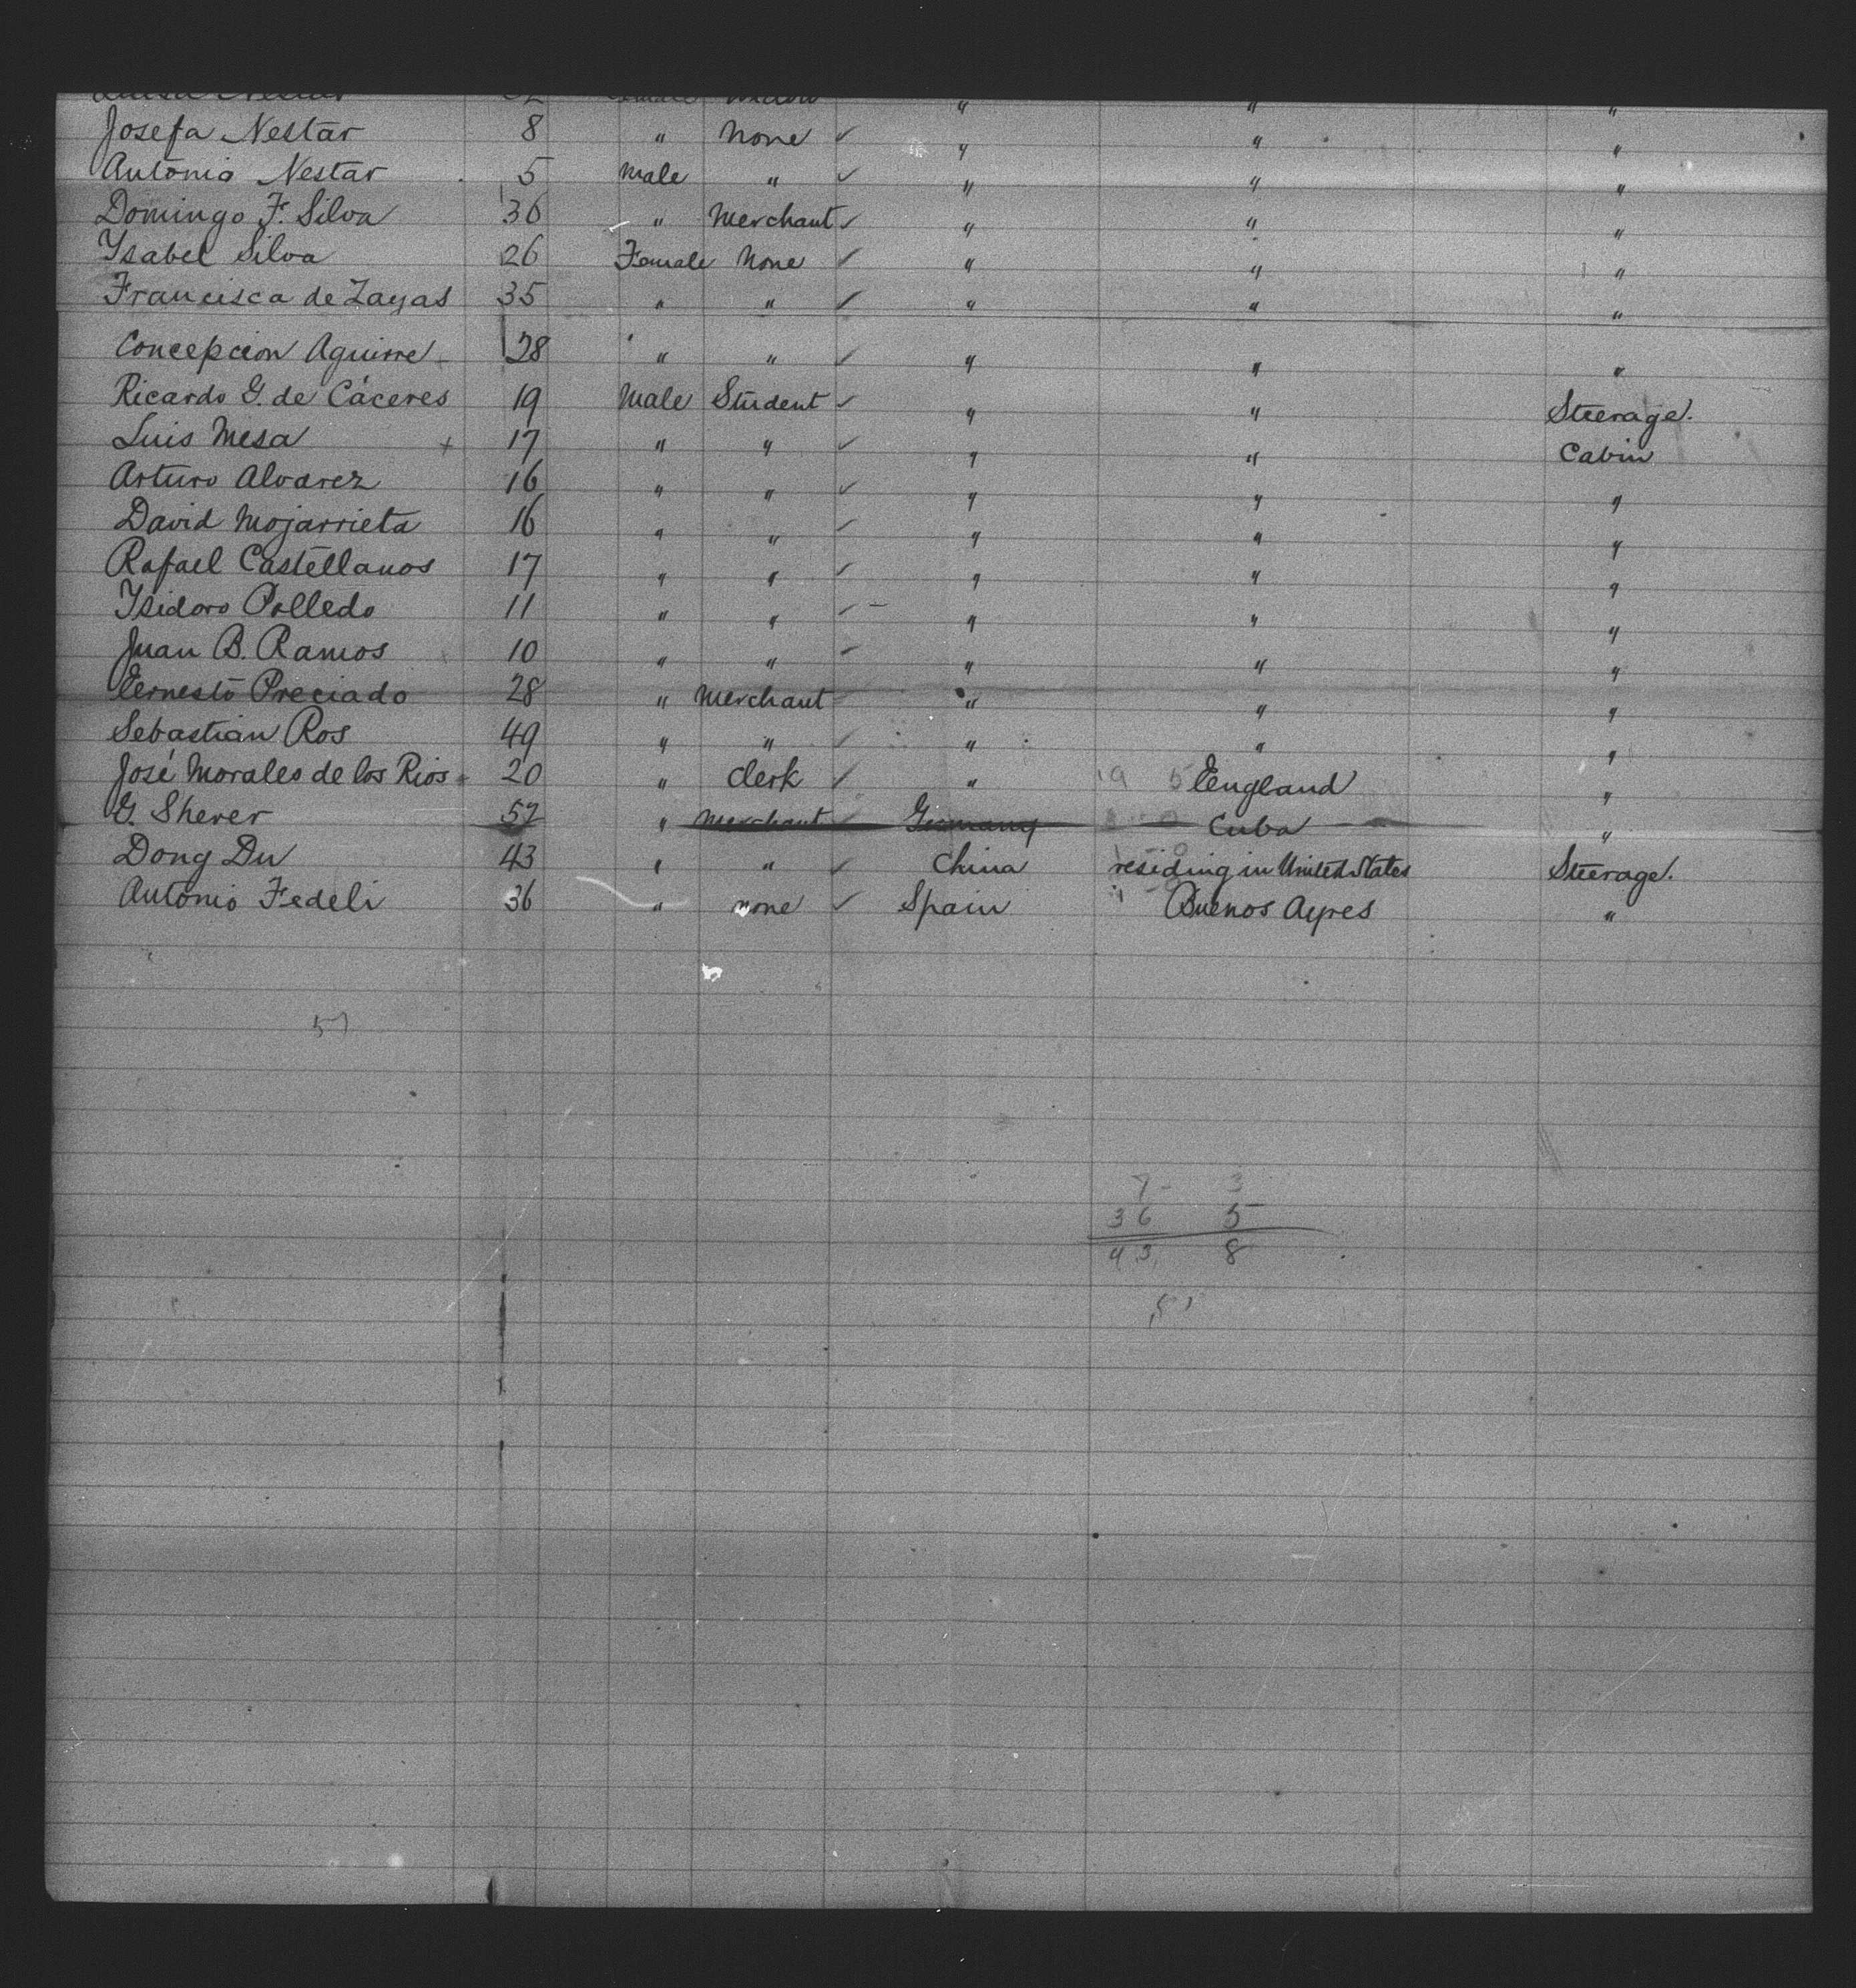 Luisa Nestar 32 Female Widow " " "
Josefa Nestar 8 " None ✓ " " "
Antonio Nestar 5 Male " ✓ " " "
Domingo F. Silva 36 " Merchant ✓ " " "
Ysabel Silva 26 Female None ✓ " " "
Francisca de Zayas 35 " " ✓ " " "
Concepcion Aguirre 28 " " ✓ " " "
Ricardo G. de Cáceres 19 Male Student ✓ " " Steerage.
Luis Mesa + 17 " " ✓ " " Cabin
Arturo Alvarez 16 " " ✓ " " "
David Mojarrieta 16 " " ✓ " " "
Rafael Castellanos 17 " " ✓ " " "
Isidoro Polledo 11 " " ✓ - " " "
Juan B. Ramos 10 " " ✓ " " "
Ernesto Preciado 28 " Merchant ✓ " " "
Sebastian Ros 49 " " ✓ " " "
José Morales de los Rios 20 " Clerk ✓ " England "
G. Sherer 52 " Merchant ✓ Germany Cuba "
Dong Du 43 " " ✓ China residing in United States Steerage.
Antonio Fedeli 36 " none ✓ Spain Buenos Ayres "
51
7 - 3
36 5
43 8
51